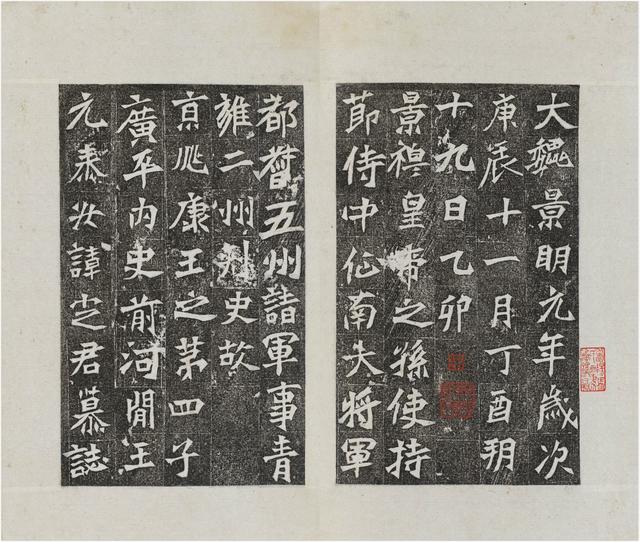 大魏景明元年歲次
庚辰十一月丁酉朔
十九日乙卯
景穆皇帝之孫使持
節侍中征南大將軍
都督五州諸軍事青
雍二州刺史故
京兆康王之第四子
廣平內史前河間王
元泰安諱定君墓誌